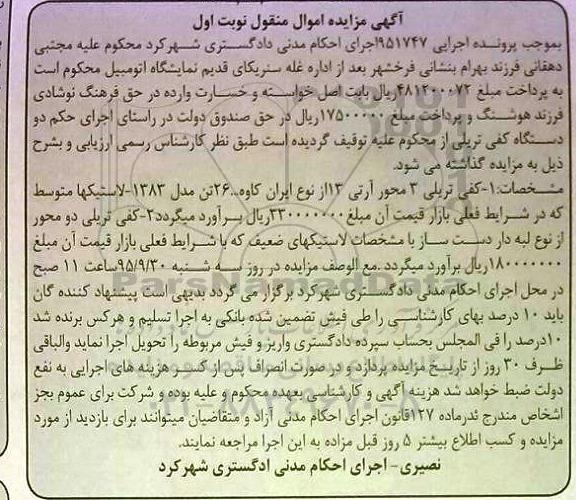 آگهی مزایده اموال منقول نوبت اول
بموجب پرونده اجرایی ۹۵۱۷۴۷اجرای احکام مدنی دادگستری شهرکرد محکوم علیه مجتبی
دهقانی فرزند بهرام بنشانی فرخشهر بعد از اداره غله سنریکای قدیم نمایشگاه اتومبیل محکوم است
به پرداخت مبلغ ۴۸۱۲۰۰۰۷۲ریال بابت اصل خواسته و خسارت وارده در حق فرهنگ نوشادی
فرزند هوشنگ و پرداخت مبلغ ۱۷۵۰۰۰۰۰ریال در حق صندوق دولت در راستای اجرای حکم دو
دستگاه کفی تریلی از محکوم علیه توقیف گردیده است طبق نظر کارشناس رسمی ارزیابی و بشرح
ذیل به مزایده گذاشته می شود.
مشخصات:۱-کفی تریلی ۳ محور آرتی ۱۳از نوع ایران کاوه..۲۶تن مدل ۱۳۸۳-لاستیکها متوسط
که در شرایط فعلی بازار قیمت آن مبلغ۳۳۰۰۰۰۰۰۰ریال برآورد میگردد۲-کفی تریلی دو محور
از نوع لبه دار دست ساز با مشخصات لاستیکهای ضعیف که با شرایط فعلی بازار قیمت آن مبلغ
۱۸۰۰۰۰۰۰۰ریال برآورد میگردد .مع الوصف مزایده در روز سه شنبه ۹۵/۹/۳۰ساعت ۱۱ صبح
در محل اجرای احکام مدنی دادگستری شهرکرد برگزار می گردد بدیهی است پیشنهاد کننده گان
باید ۱۰ درصد بهای کارشناسی را طی فیش تضمین شده بانکی به اجرا تسلیم و هرکس برنده شد
۱۰درصد را فی المجلس بحساب سپرده دادگستری واریز و فیش مربوطه را تحویل اجرا نماید والباقی
ظرف ۳۰ روز از تاریخ مزایده پردازد و در صورت انصراف پس از کسر هزینه های اجرایی به نفع
دولت ضبط خواهد شد هزینه آگهی و کارشناسی بعهده محکوم و علیه بوده و شرکت برای عموم بجز
اشخاص مندرج ندرماده ۱۲۷قانون اجرای احکام مدنی آزاد و متقاضیان میتوانند برای بازدید از مورد
مزایده و کسب اطلاع بیشتر ۵ روز قبل مزاده به این اجرا مراجعه نمایند.
نصیری- اجرای احکام مدنی ادگستری شهرکرد
ParsNamadData